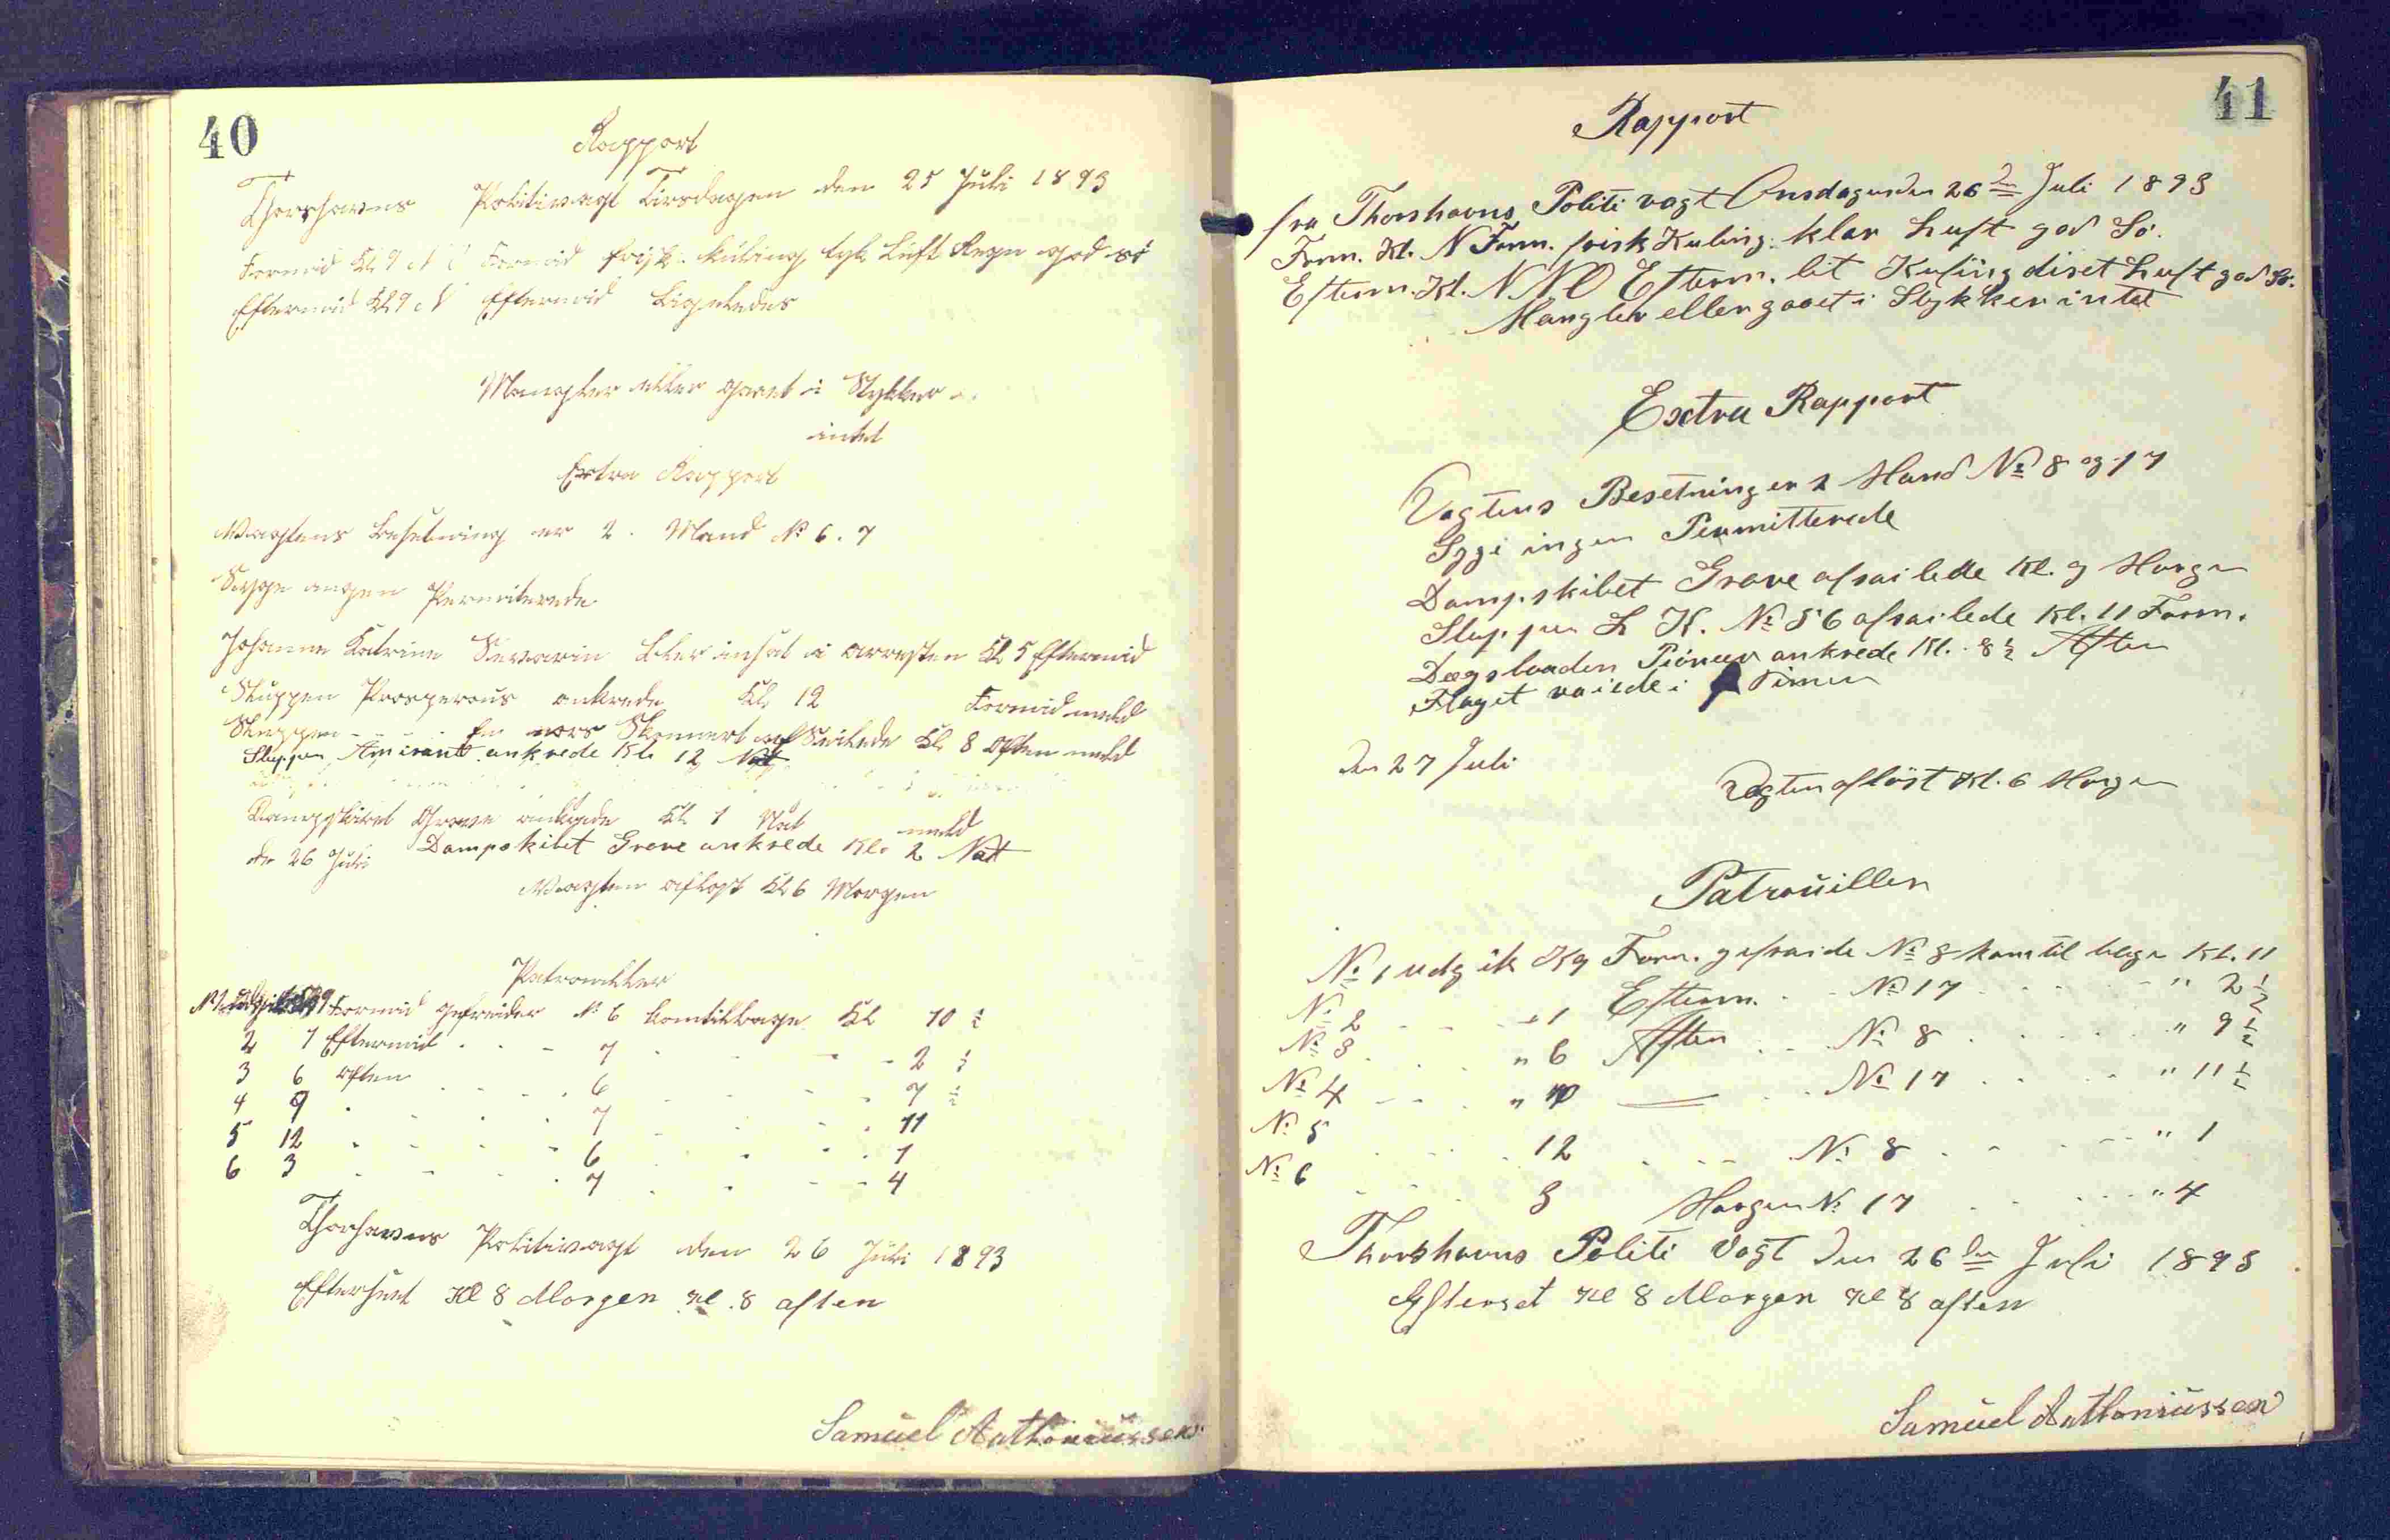 40
Rapport
Thorshavns Politivagt Tirsdagen den 25 Juli 1893
Formid Kl 9 N Formid frisk kuling tyk Luft Regn god sö
Eftermid Kl 9 N Eftermid Ligeledes
Mangler eller gaaet i Stykker
intet
Extra Rapport
Vagtens besetning er 2. Mand No 6. 7
Syge ingen Permiterede
Johanne Katrine Severin blev insat i arresten Kl 5 Eftermid
Sluppen Prosperous ankrede Kl 12 Formid meld
Sluppen En nors Skonnert af Seilede Kl 8 Aften meld
Sluppen Amirant ankrede Kl. 12 Nat
Dampskibet Greve ankrede Kl 1 Nat meld
Dampskibet Greve ankrede Kl. 2 Nat
de 26 Juli
Vagten aflöst Kl 6 Morgen
Patrouiller
No 1 Formid gefreider No 6 kom tilbage Kl 10 ½
2 1 Eftermid 7 2 ½
3 6 Aften 6 7 ½
4 9 7 11
5 12 6 1
6 3 7 4
Thorshavns Politivagt den 26 Juli 1893
Efterseet Kl 8 Morgen Kl. 8 aften
Samuel Anthoniussen
41
Rapport
fra Thorshavns Politi vagt Onsdagen den 26 den Juli 1893
Form. Kl. N Form. frisk Kuling. klar Luft god Sö.
Efterm. Kl. NNO Efterm. lit Kuling diset Luft god Sö.
Mangler eller gaaet i Stykker intet
Extra Rapport
Vagtens Besetning er 2 Mand No 8 og 17
Syge ingen Permitterede
Dampskibet Greve afsailede Kl. 9 Morgen
Sluppen L K. No 56 afsailede Kl. 11 Form.
Dægsbaaden Pioneer ankrede Kl. 8 ½ Aften
Flaget vaiede i Timer
den 27 Juli
Vagten aflöst Kl. 6 Morgen
Patrouillen
No 1 udgik Kl 9 Form. gefraide No 8 kom til bage Kl. 11
No 2 1 Efterm. No 17 " 2 ½
No 3 " 6 Aften No 8 " 9 ½
No 4 " No 17 " 11 ½
No 5 12 No 8 " 1
No 6 3 Morgen No 17 " 4
Thorshavns Politi Vagt den 26 den Juli 1893
Efterset Kl 8 Morgen Kl 8 aften
Samuel Anthoniussen